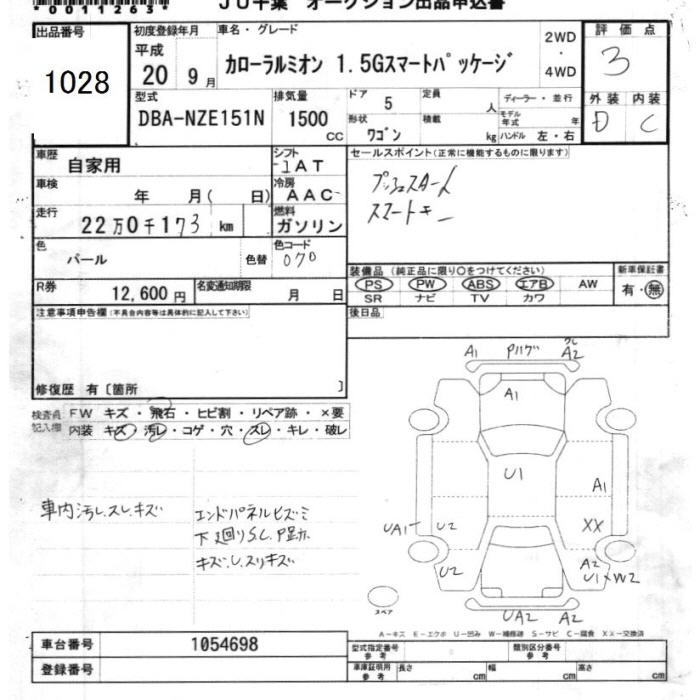 *0011263*
JU千葉 オークション出品申込書
出品番号
1028
初度登録年月
平成
20 9月
車名・グレード
カローラルミオン 1.5Gスマートパッケージ
2WD
・
4WD
評価点
3
外装 内装
D C
型式
DBA-NZE151N
排気量
1500
CC
ドア 5
定員 人
形状 ワゴン
積載 kg
ディーラー・並行
モデル年式 年
ハンドル 左・右
車歴
自家用
シフト
IAT
車検
年 月(日)
冷房
AAC
走行
22万0千173 km
燃料
ガソリン
色
パール
色替
色コード
070
R券
12,600円
名変通知期限
月 日
セールスポイント(正常に機能するものに限ります)
プッシュスタート
スマートキー
装備品(純正品に限り○をつけてください)
PS PW ABS エアB AW
SR ナビ TV カワ
新車保証書
有・無
後日品
注意事項申告欄(不具合内容等は具体的に記入して下さい)
修復歴 有〔箇所 〕
検査員記入欄
FW キズ・飛石・ヒビ割・リペア跡・×要
内装 キズ・汚レ・コゲ・穴・スレ・キレ・破レ
車内汚し、スレ、キズ
エンドパネルヒズミ
下廻りS、C、
キズ、U、スリキズ
A1 A2
A1
U1
A1
UA1 U2
XX
U2
A2
U1 XW2
UA2 A2
スペア
A-キズ E-エクボ U-凹み W-補修跡 S-サビ C-腐食 XX-交換済
車台番号
1054698
登録番号
型式指定番号 参考
類別区分番号 参考
車庫証明用 参考
長さ cm 幅 cm 高さ cm